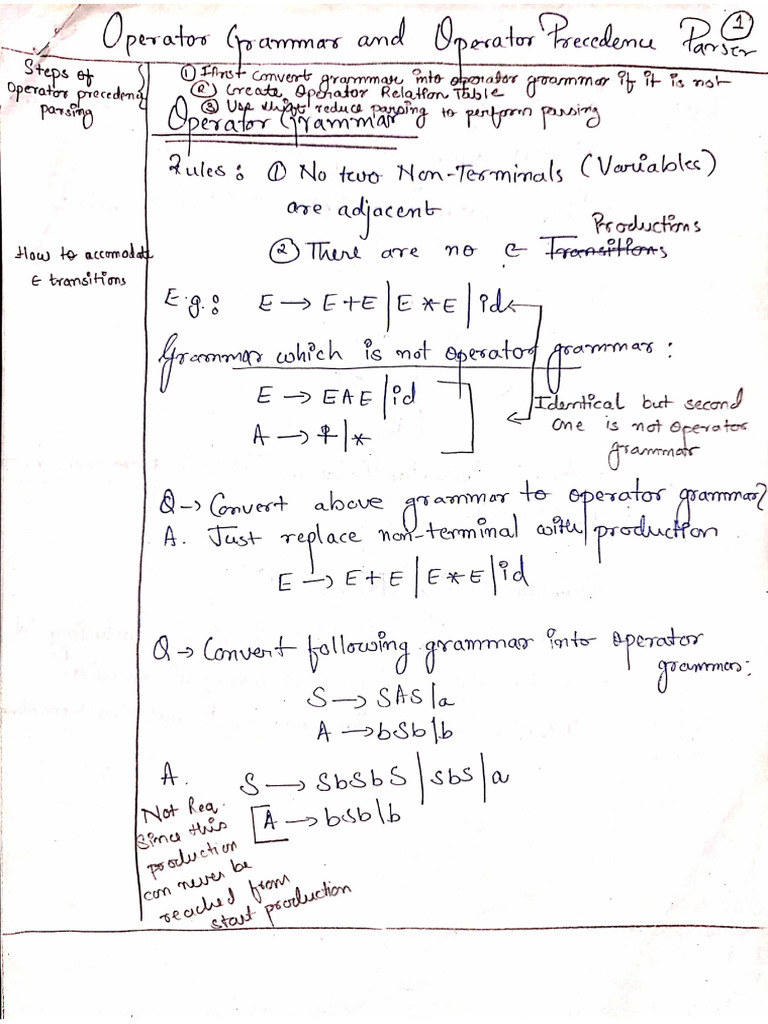 Operator Grammar and Operator Precedence Parser
1
Steps of
Operator precedence
parsing
① First convert grammar into operator grammar if it is not
② Create Operator Relation Table
③ Use shift reduce parsing to perform parsing
Operator Grammar
Rules: ① No two Non-Terminals (Variables)
are adjacent
Productions
② There are no ∈ Transitions
How to accomodate
∈ transitions
E.g.: E → E+E | E*E | id
Grammar which is not operator grammar:
E → EAE | id
A → + | *
Identical but second
one is not operator
grammar
Q → Convert above grammar to operator grammar?
A. Just replace non-terminal with production
E → E+E | E*E | id
Q → Convert following grammar into operator
grammar:
S → SAS | a
A → bSb | b
A. S → SbSbS | SbS | a
A → bSb | b
Not Req.
Since this
production
can never be
reached from
start production